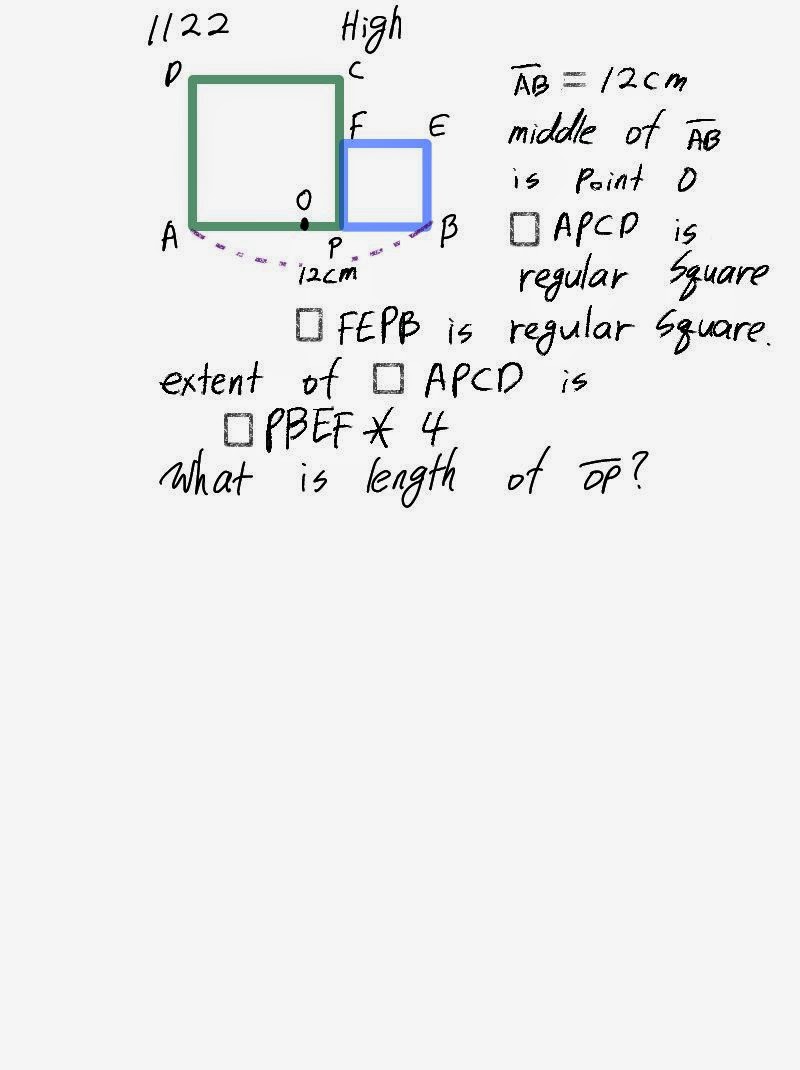 1122 High
D C
F E
O
A P B
12cm
AB = 12cm
middle of AB
is Point O
□ APCD is
regular Square
□ FEPB is regular Square.
extent of □ APCD is
□ PBEF * 4
What is length of OP?